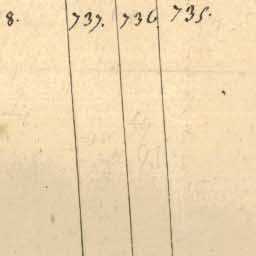 8. 737. 736. 735.